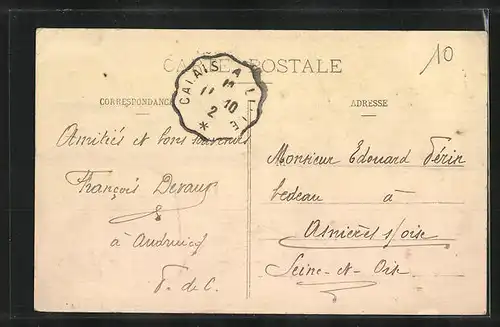 CARTE POSTALE
10
CALAIS A LILLE
11 10
2
CORRESPONDANCE
ADRESSE
Amitiés et bons souvenirs
François Devaux
à Audruicq
P. de C.
Monsieur Edouard Périn
bedeau à
Asnières s/oise
Seine-et-Oise